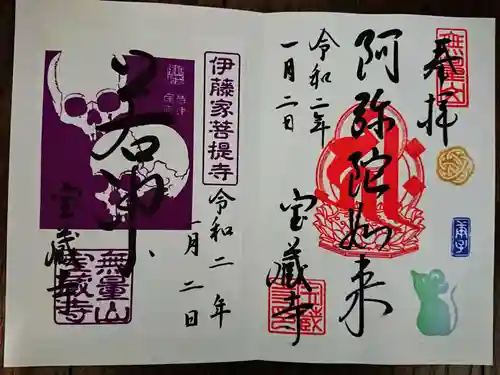 奉拝
阿弥陀如来
令和二年
一月二日
宝蔵寺
庚子
伊藤家菩提寺
令和二年
一月二日
若冲
宝蔵寺
無量山
宝蔵寺